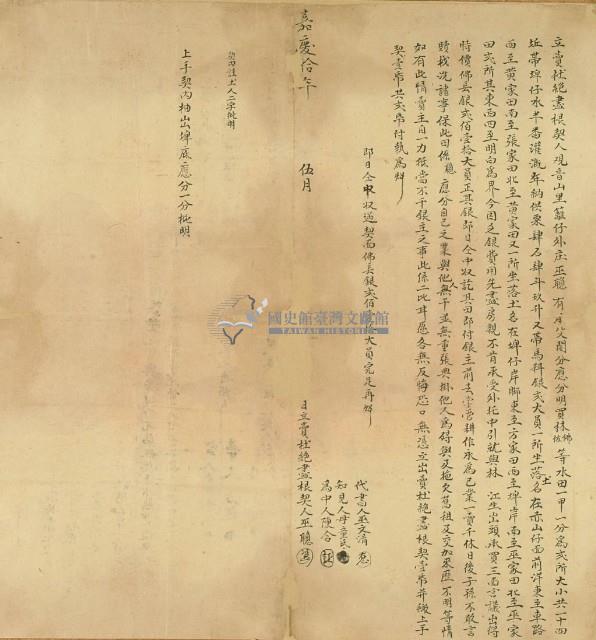 立賣杜絕盡根契人观音山里𦾔仔外庄巫聰有承父鬮分應分明買林佛佑等水田一甲一分為貳所大小共一十四
坵帶埤仔水半番灌溉年納供粟肆石肆斗玖升又帶馬料銀貳大員一所坐落土名在赤山仔面前洋東至車路
西至黃家田南至張家田北至黃家田又一所坐落土名在埤仔岸腳東至方家田西至埤岸南至巫家田北至巫家
田貳所其東西四至明白為界今因乏銀費用先盡房親不肯承受外托中引就與林江生出頭承買三面言議出得
時價佛頭銀貳佰壹拾大員正其銀即日仝中收訖其田即付銀主前去掌管耕作承為己業一賣千休日後子孫不敢言
贖找洗諸事保此田係聰應分自己之業與他人無干並無重張典掛他人為碍與及拖欠舊租及交加來歷不明等情
如有此情賣主自一力抵當不干銀主之事此係二比耳愿各無反悔恐口無憑立出賣杜絕盡根契壹帋并繳上手
契壹帋共貳帋付執為炤
即日仝中收過契面佛頭銀貳佰大員完足再炤
代書人巫文清
知見人母童氏
為中人陳合
嘉慶拾年 伍月 日立賣杜絕盡根契人巫聰
契內註土人二字批明
上手契內抽出埤底應分一分批明
國史館臺灣文獻館
TAIWAN HISTORICA